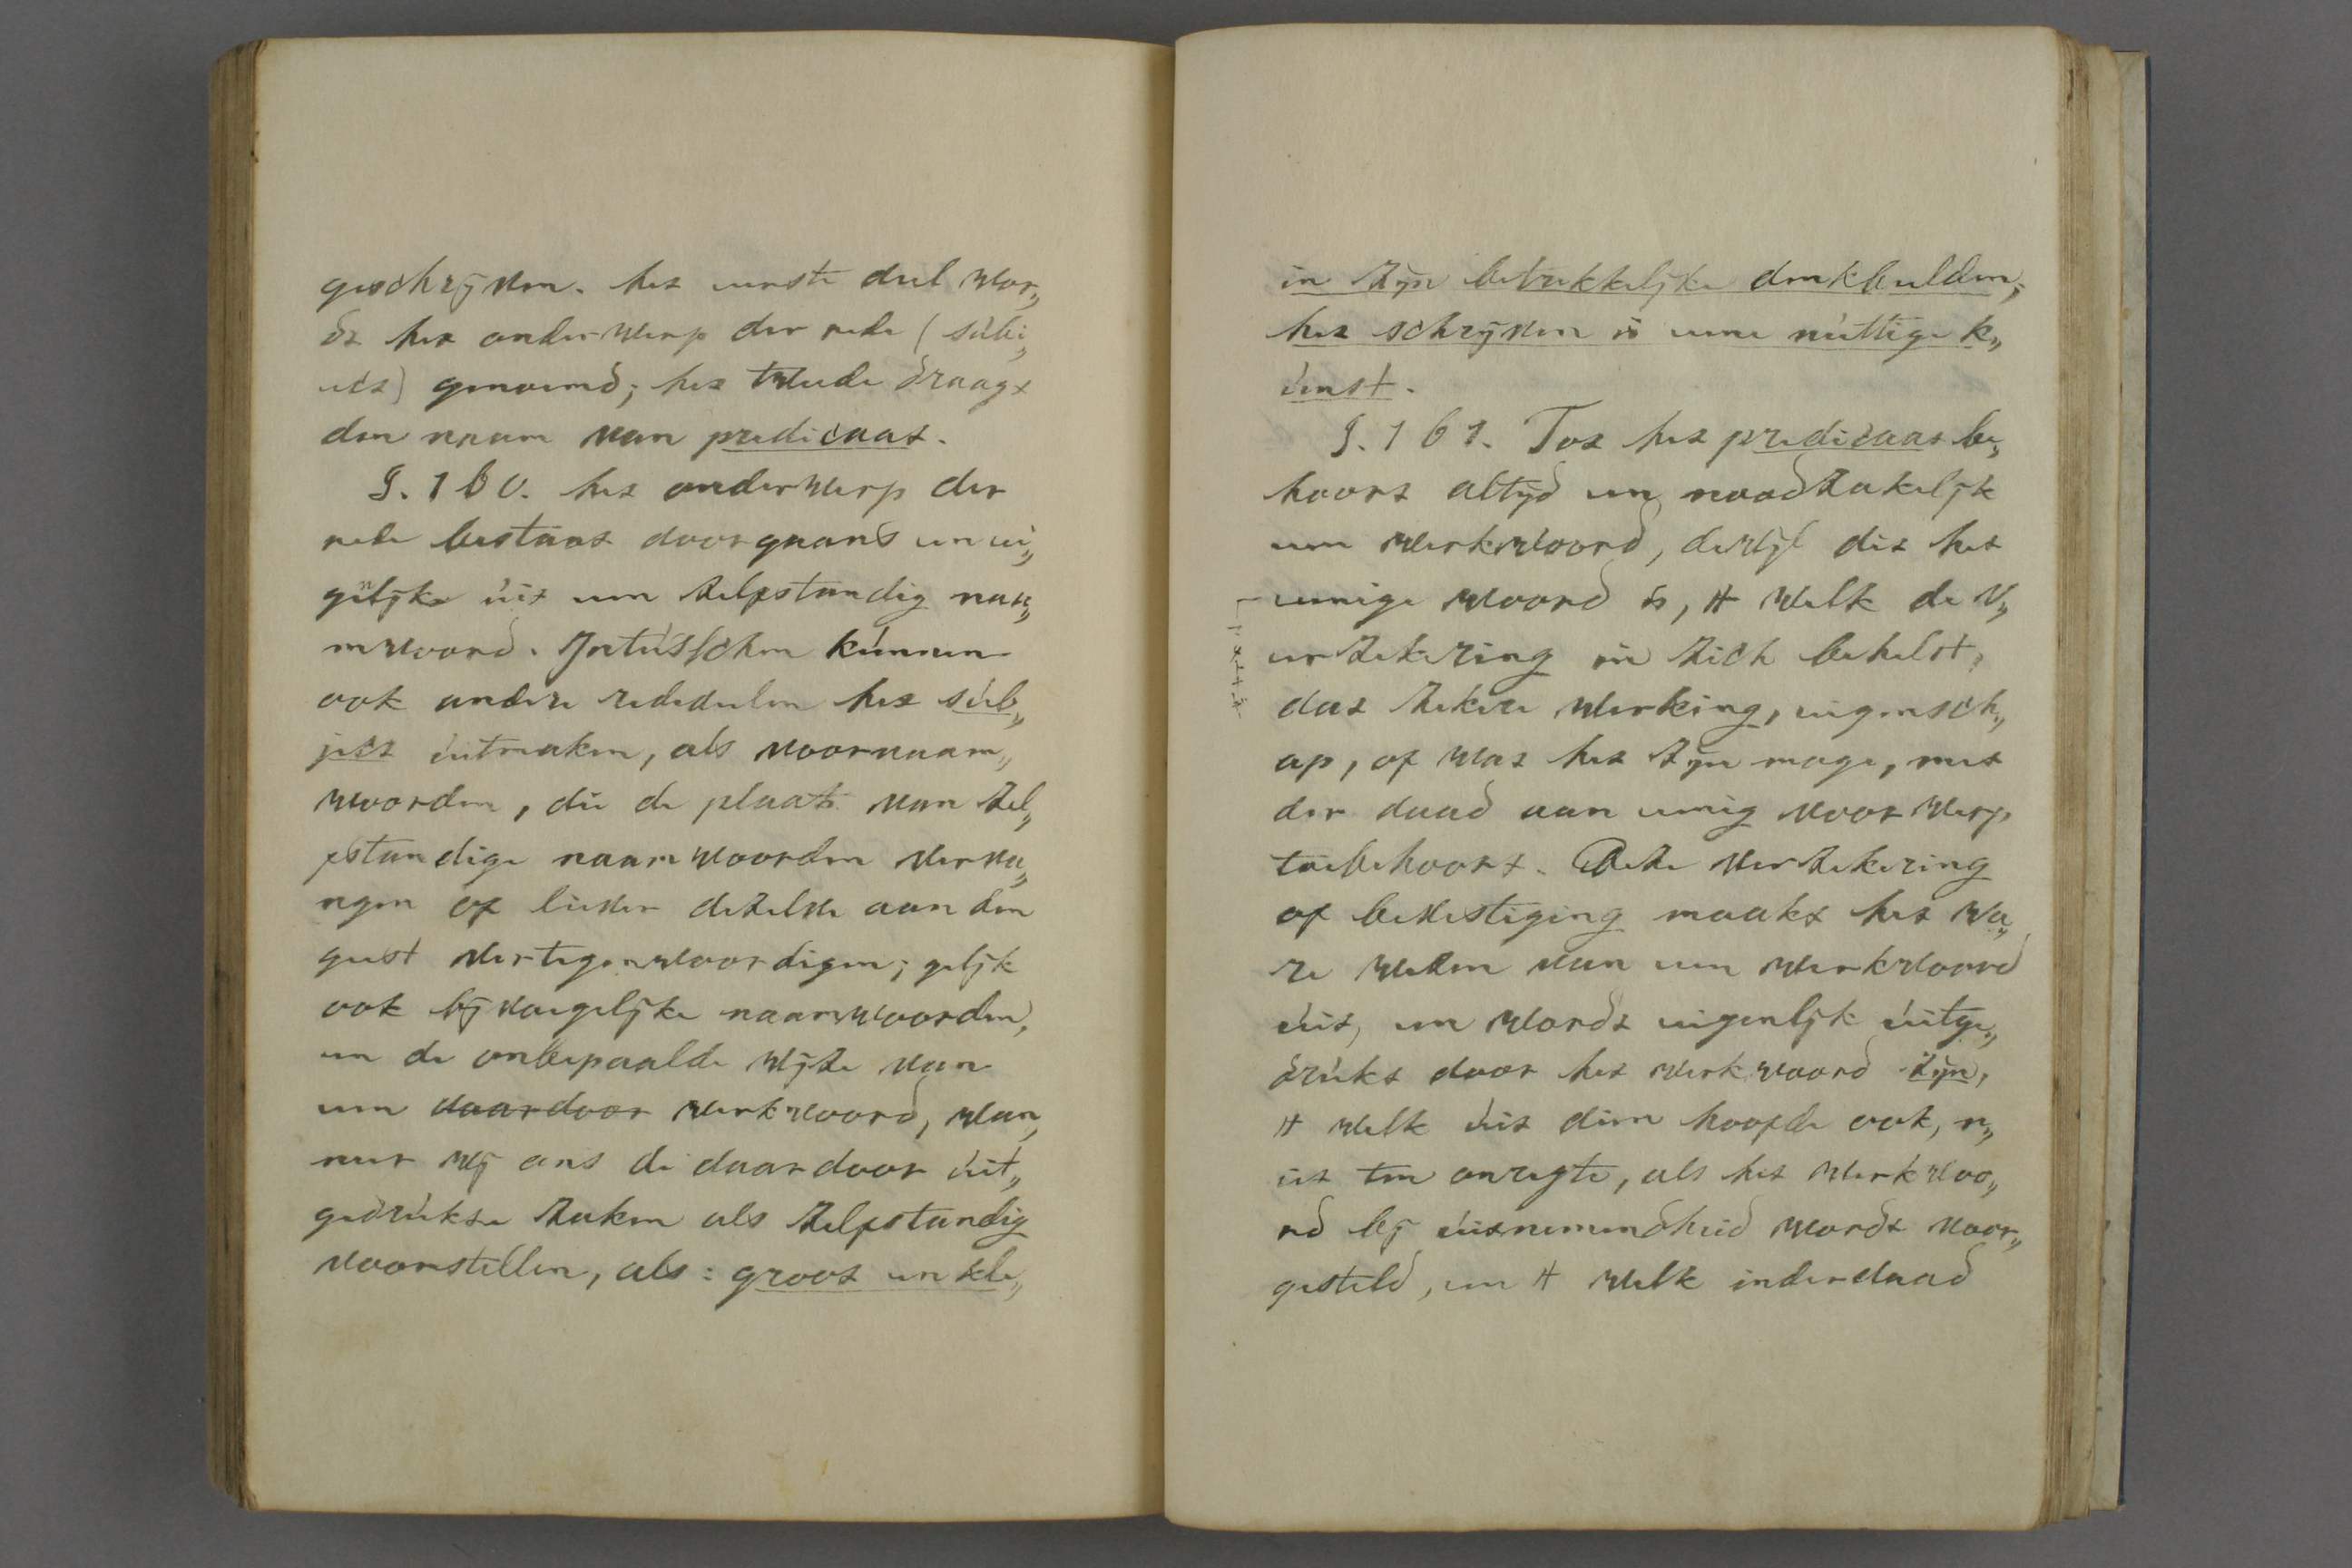 geschrijven. het eerste deel wor„
dt het onderwerp der rede (subj„
ect) genoemd; het tweede draagt
den naam van predicaat.
§. 160. het onderwerp der
rede bestaat doorgaans en ei„
gelijke uit een zelfstandig naa„
mwoord. Intusschen kunnen
ook andere rededeelen het sub„
ject uitmaken, als voornaam„
woorden, die de plaats van zel„
fstandige naamwoorden verva„
ngen of liever dezelve aan den
geest vertegenwoordigen; gelijk
ook bijvoegelijke naamwoorden,
en de onbepaalde wijze van
een daardoor werkwoord, wan„
neer wij ons de daardoor uit„
gedrukte zaken als zelfstandig
voorstellen, als: groot en kle„
in zijn betrekkelijke denkbeelden;
het schrijven is eene nuttige k„
unst.
§. 161. Tot het predicaat be„
hoort altijd en noodzakelijk
een werkwoord, dewijl dit het
eenige woord is, 't welk de v„
erzekering in zich behelst,
dat zekere werking, eigensch„
ap, of wat het zijn moge, met
der daad aan eenig voorwerp
toebehoort. Deze verzekering
of bevestiging maakt het wa„
re wezen van een werkwoord
uit, en wordt eigenlijk uitge„
drukt door het werkwoord zijn,
't welk uit dien hoofde ook, n„
iet ten onregte, als het werkwoo„
rd bij uitnemendheid wordt voor„
gesteld, en 't welk inderdaad